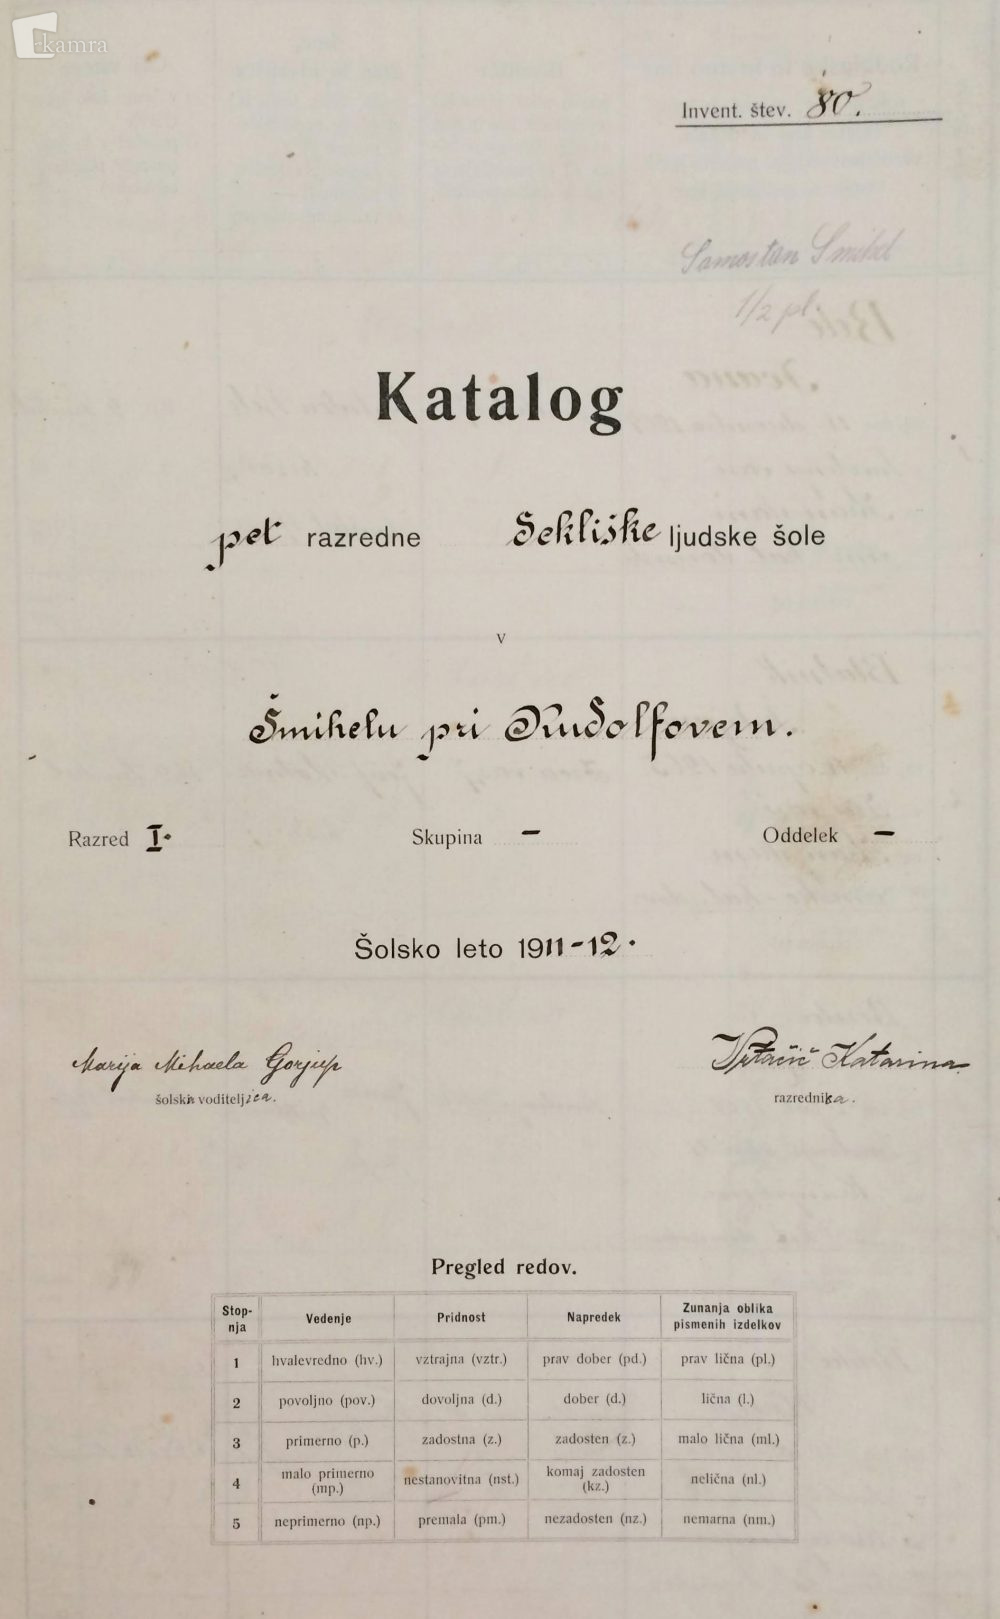 kamra
Invent. štev. 80.
Samostan Šmihel
1/2 pl.
Katalog
pet razredne Dekliške ljudske šole
v
Šmihelu pri Rudolfovem.
Razred I. Skupina — Oddelek —
Šolsko leto 1911-12.
Marija Mihaela Gorjup
šolska voditeljica.
Katarina
razrednika.
Pregled redov.
Stop- Vedenje Pridnost Napredek Zunanja oblika
nja pismenih izdelkov
1 hvalevredno (hv.) vztrajna (vztr.) prav dober (pd.) prav lična (pl.)
2 povoljno (pov.) dovoljna (d.) dober (d.) lična (l.)
3 primerno (p.) zadostna (z.) zadosten (z.) malo lična (ml.)
4 malo primerno (mp.) nestanovitna (nst.) komaj zadosten (kz.) nelična (nl.)
5 neprimerno (np.) premala (pm.) nezadosten (nz.) nemarna (nm.)